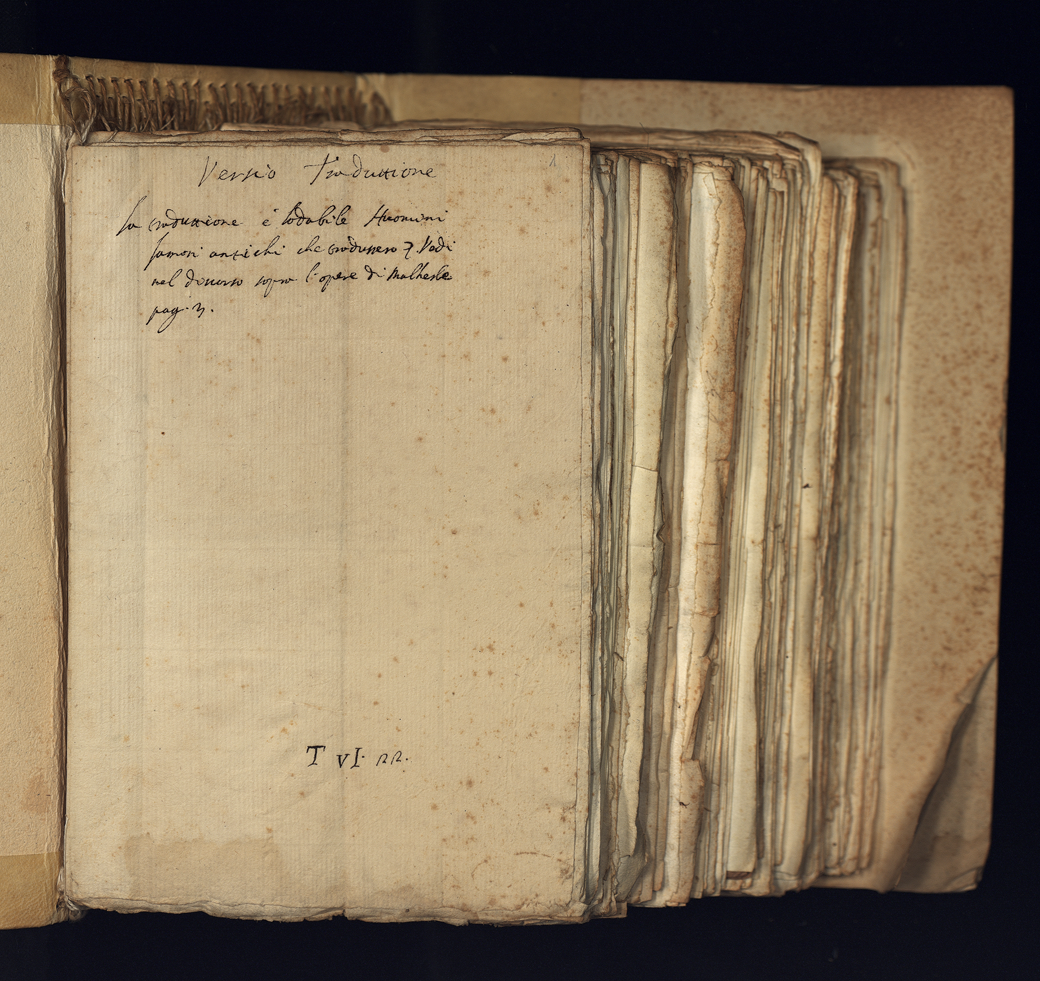 Versio Traduttione
1
La traduttione è lodabile Huomini
famosi antichi che tradussero 7. Vedi
nel discorso sopra l'opere di Malherbe
pag. 3.
T VI. 22.